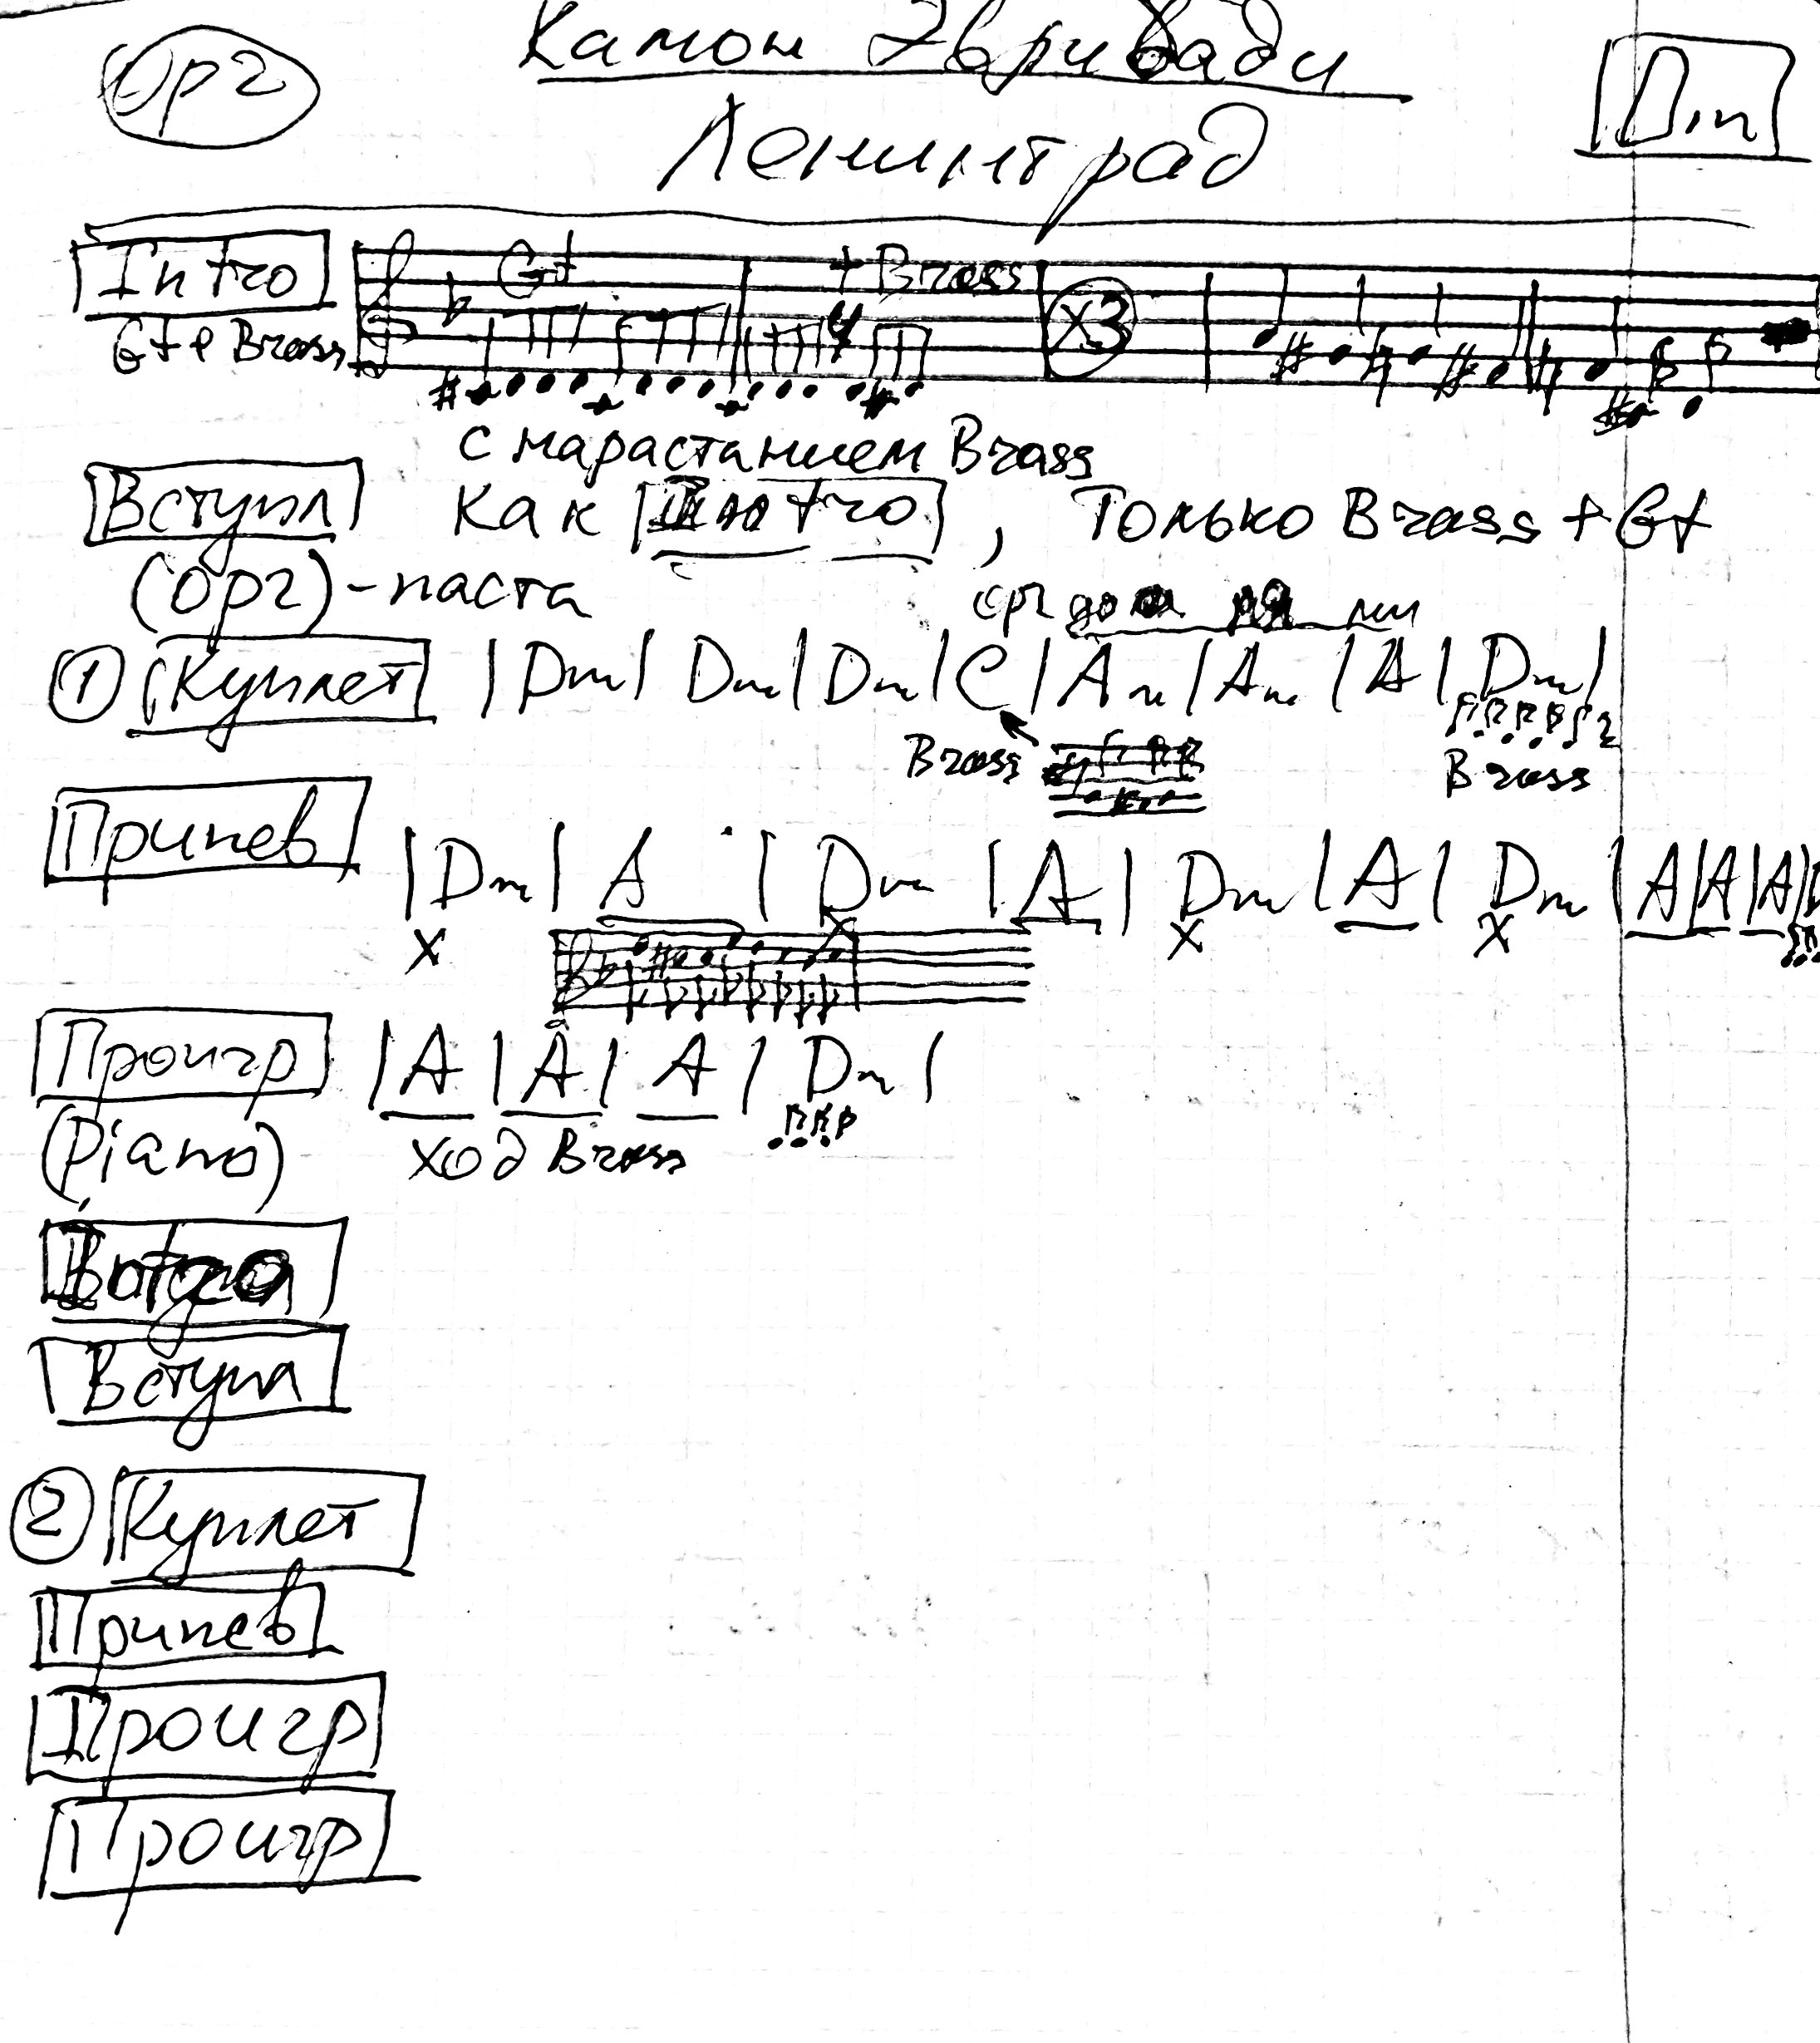 Орг Камон Эврибади Dm
Ленинград
Intro Gt + Brass x3
Gt e Brass
с нарастанием Brass
Вступл как Intro, Только Brass + Gt
(орг) - паста орг до ля ми
1 Куплет | Dm | Dm | Dm | C | Am | Am | A | Dm |
Brass Brass
Припев | Dm | A | Dm | A | Dm | A | Dm | A | A | A |
x x x x
Проигр | A | A | A | Dm |
(Piano) ход Brass
Вступл
2 Куплет
Припев
Проигр
Проигр